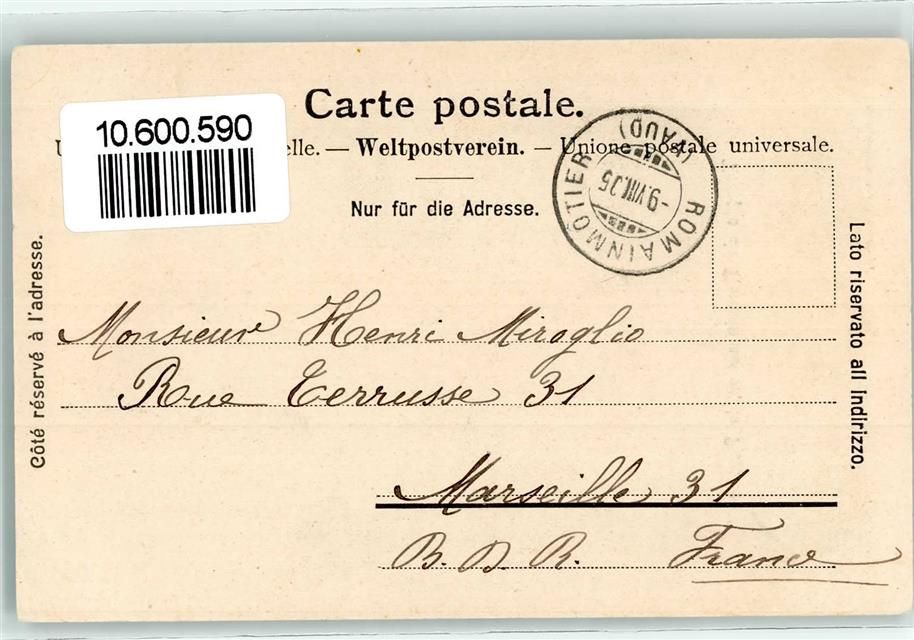 Carte postale.
10.600.590
U elle. — Weltpostverein. — Unione postale universale.
Nur für die Adresse.
ROMAINMÔTIER (VAUD)
-9.VIII.05
Côté réservé à l'adresse.
Lato riservato all Indirizzo.
Monsieur Henri Miroglio
Rue Terrusse 31
Marseille 31
B. D. R. France